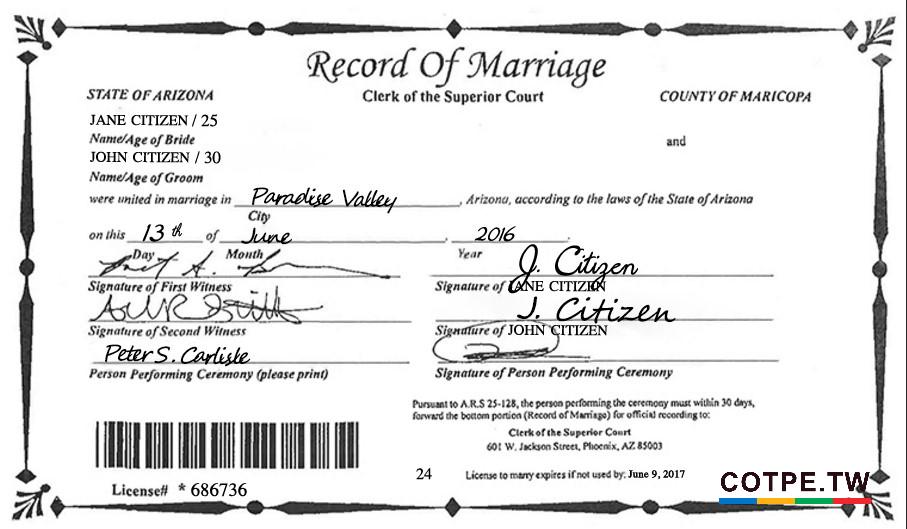 Record Of Marriage
Clerk of the Superior Court
STATE OF ARIZONA
COUNTY OF MARICOPA
JANE CITIZEN / 25
Name/Age of Bride
and
JOHN CITIZEN / 30
Name/Age of Groom
were united in marriage in Paradise Valley, Arizona, according to the laws of the State of Arizona
City
on this 13th of June, 2016.
Day Month Year
J. Citizen
Signature of First Witness
Signature of JANE CITIZEN
J. Citizen
Signature of Second Witness
Signature of JOHN CITIZEN
Peter S. Carlisle
Person Performing Ceremony (please print)
Signature of Person Performing Ceremony
Pursuant to A.R.S 25-128, the person performing the ceremony must within 30 days,
forward the bottom portion (Record of Marriage) for official recording to:
Clerk of the Superior Court
601 W. Jackson Street, Phoenix, AZ 85003
24
License to marry expires if not used by: June 9, 2017
License# * 686736
COTPE.TW